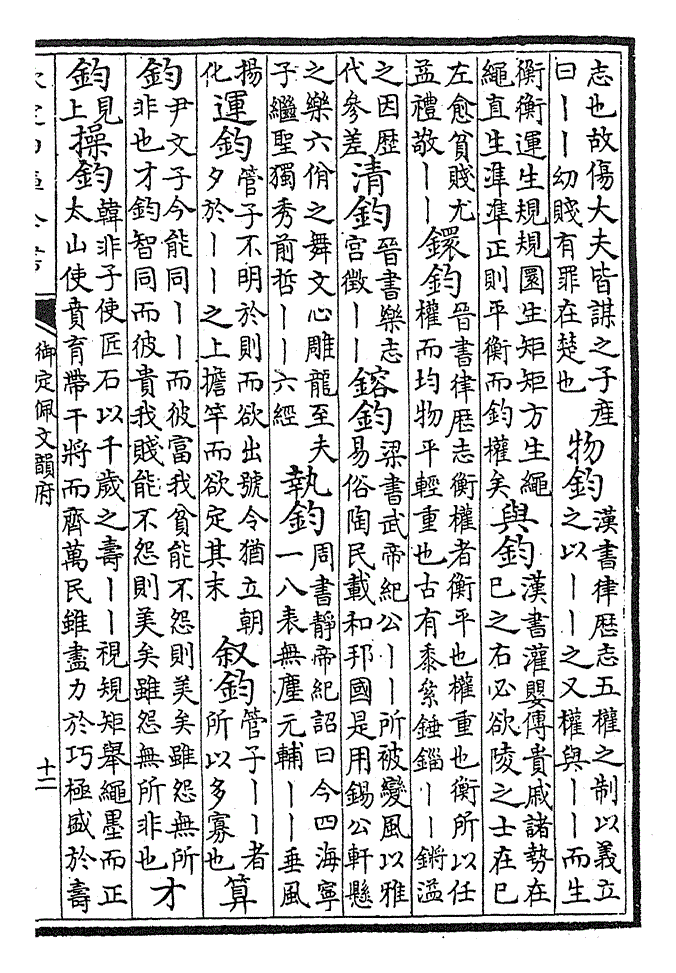 志也故傷大夫皆謀之子產曰丨丨幼賤有罪在楚也 物鈞 漢書律歷志五權之制以義立之以丨丨之又權與丨丨而生
衡衡運生規規圜生矩矩方生繩繩直生準準正則平衡而鈞權矣 與鈞 漢書灌嬰傳貴戚諸勢在已之右必欲陵之士在已
左愈貧賤尤益禮敬丨丨 鐶鈞 晉書律歷志衡權者衡平也權重也衡所以任權而均物平輕重也古有黍絫錘錙丨丨鏘溢
之因歷代參差 清鈞 晉書樂志宮徵丨丨 鎔鈞 梁書武帝紀公丨丨所被變風以雅易俗陶民載和邦國是用錫公軒懸
之樂六佾之舞文心雕龍至夫子繼聖獨秀前哲丨丨六經 執鈞 周書靜帝紀詔曰今四海寧一八表無塵元輔丨丨垂風
揚化 運鈞 管子不明於則而欲出號令猶立朝夕於丨丨之上擔竿而欲定其末 叙鈞 管子丨丨者所以多寡也 算
鈞 尹文子今能同丨丨而彼富我貧能不怨則美矣雖怨無所非也才鈞智同而彼貴我賤能不怨則美矣雖怨無所非也 才
鈞 見上 操鈞 韓非子使匠石以千歲之壽丨丨視規矩舉繩墨而正太山使賁育帶干將而齊萬民雖盡力於巧極盛於壽
御定佩文韻府
十二